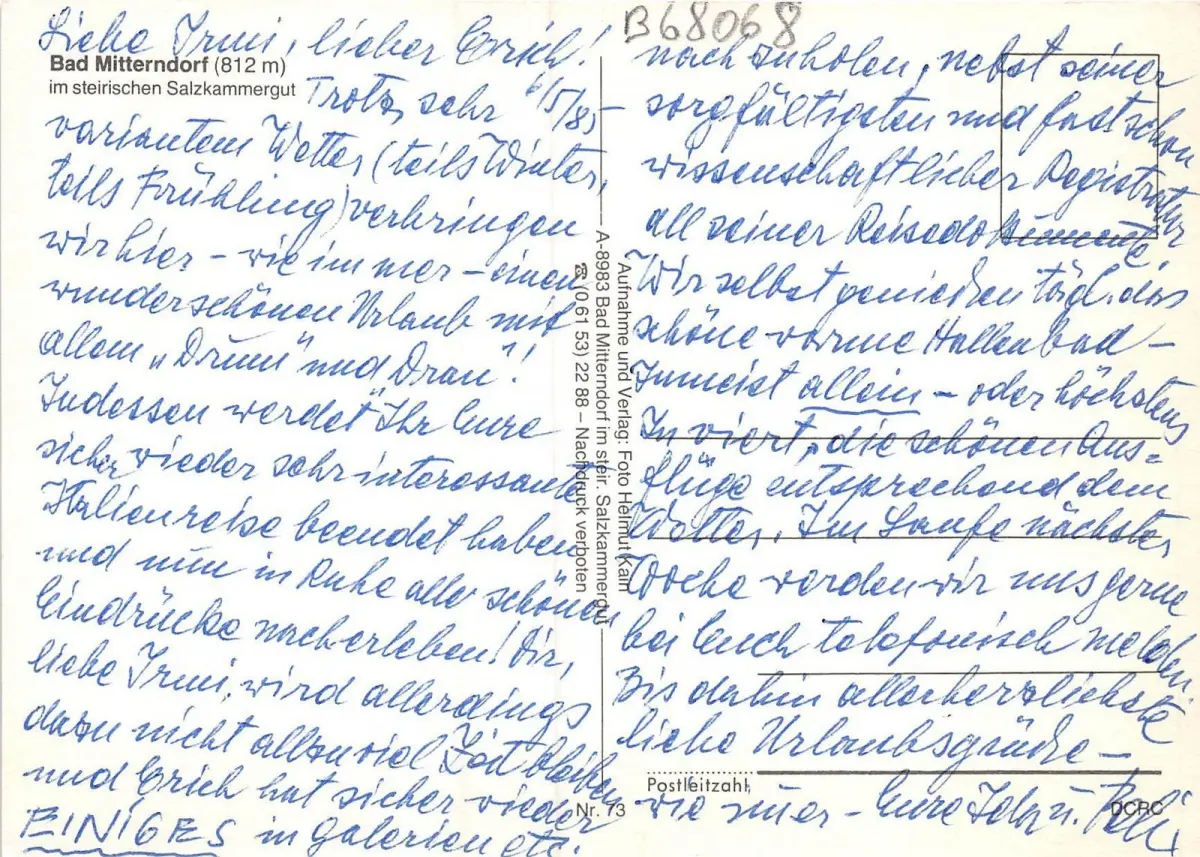 B68068
Liebe Irmi, lieber Erich!
Bad Mitterndorf (812 m)
im steirischen Salzkammergut
6/5/85
Trotz sehr
variantem Wetter (teils Winter,
teils Frühling) verbringen
wir hier - wie immer - einen
wunderschönen Urlaub mit
allem „Drum" und Dran"!
Indessen werdet Ihr Eure
sicher wieder sehr interessante
Italienreise beendet haben
und nun in Ruhe alle schönen
Eindrücke nacherleben! Dir,
liebe Irmi, wird allerdings
dazu nicht allzuviel Zeit bleiben
und Erich hat sicher wieder
EINIGES in Galerien etc.
nachzuholen, nebst seiner
sorgfältigsten und fast schon
wissenschaftlicher Registratur
all seiner Reisedokumente.
Wir selbst genießen tägl. das
schöne warme Hallenbad -
zumeist allein - oder höchstens
zu viert, die schönen Aus=
flüge entsprechend dem
Wetter. Im Laufe nächster
Woche werden wir uns gerne
bei Euch telefonisch melden.
Bis dahin allerherzlichste
liebe Urlaubsgrüße -
wie immer - Eure
Aufnahme und Verlag: Foto Helmut Kain
A-8983 Bad Mitterndorf im steir. Salzkammergut
☎ (0 61 53) 22 88 – Nachdruck verboten
Postleitzahl
Nr. 73
DCRC